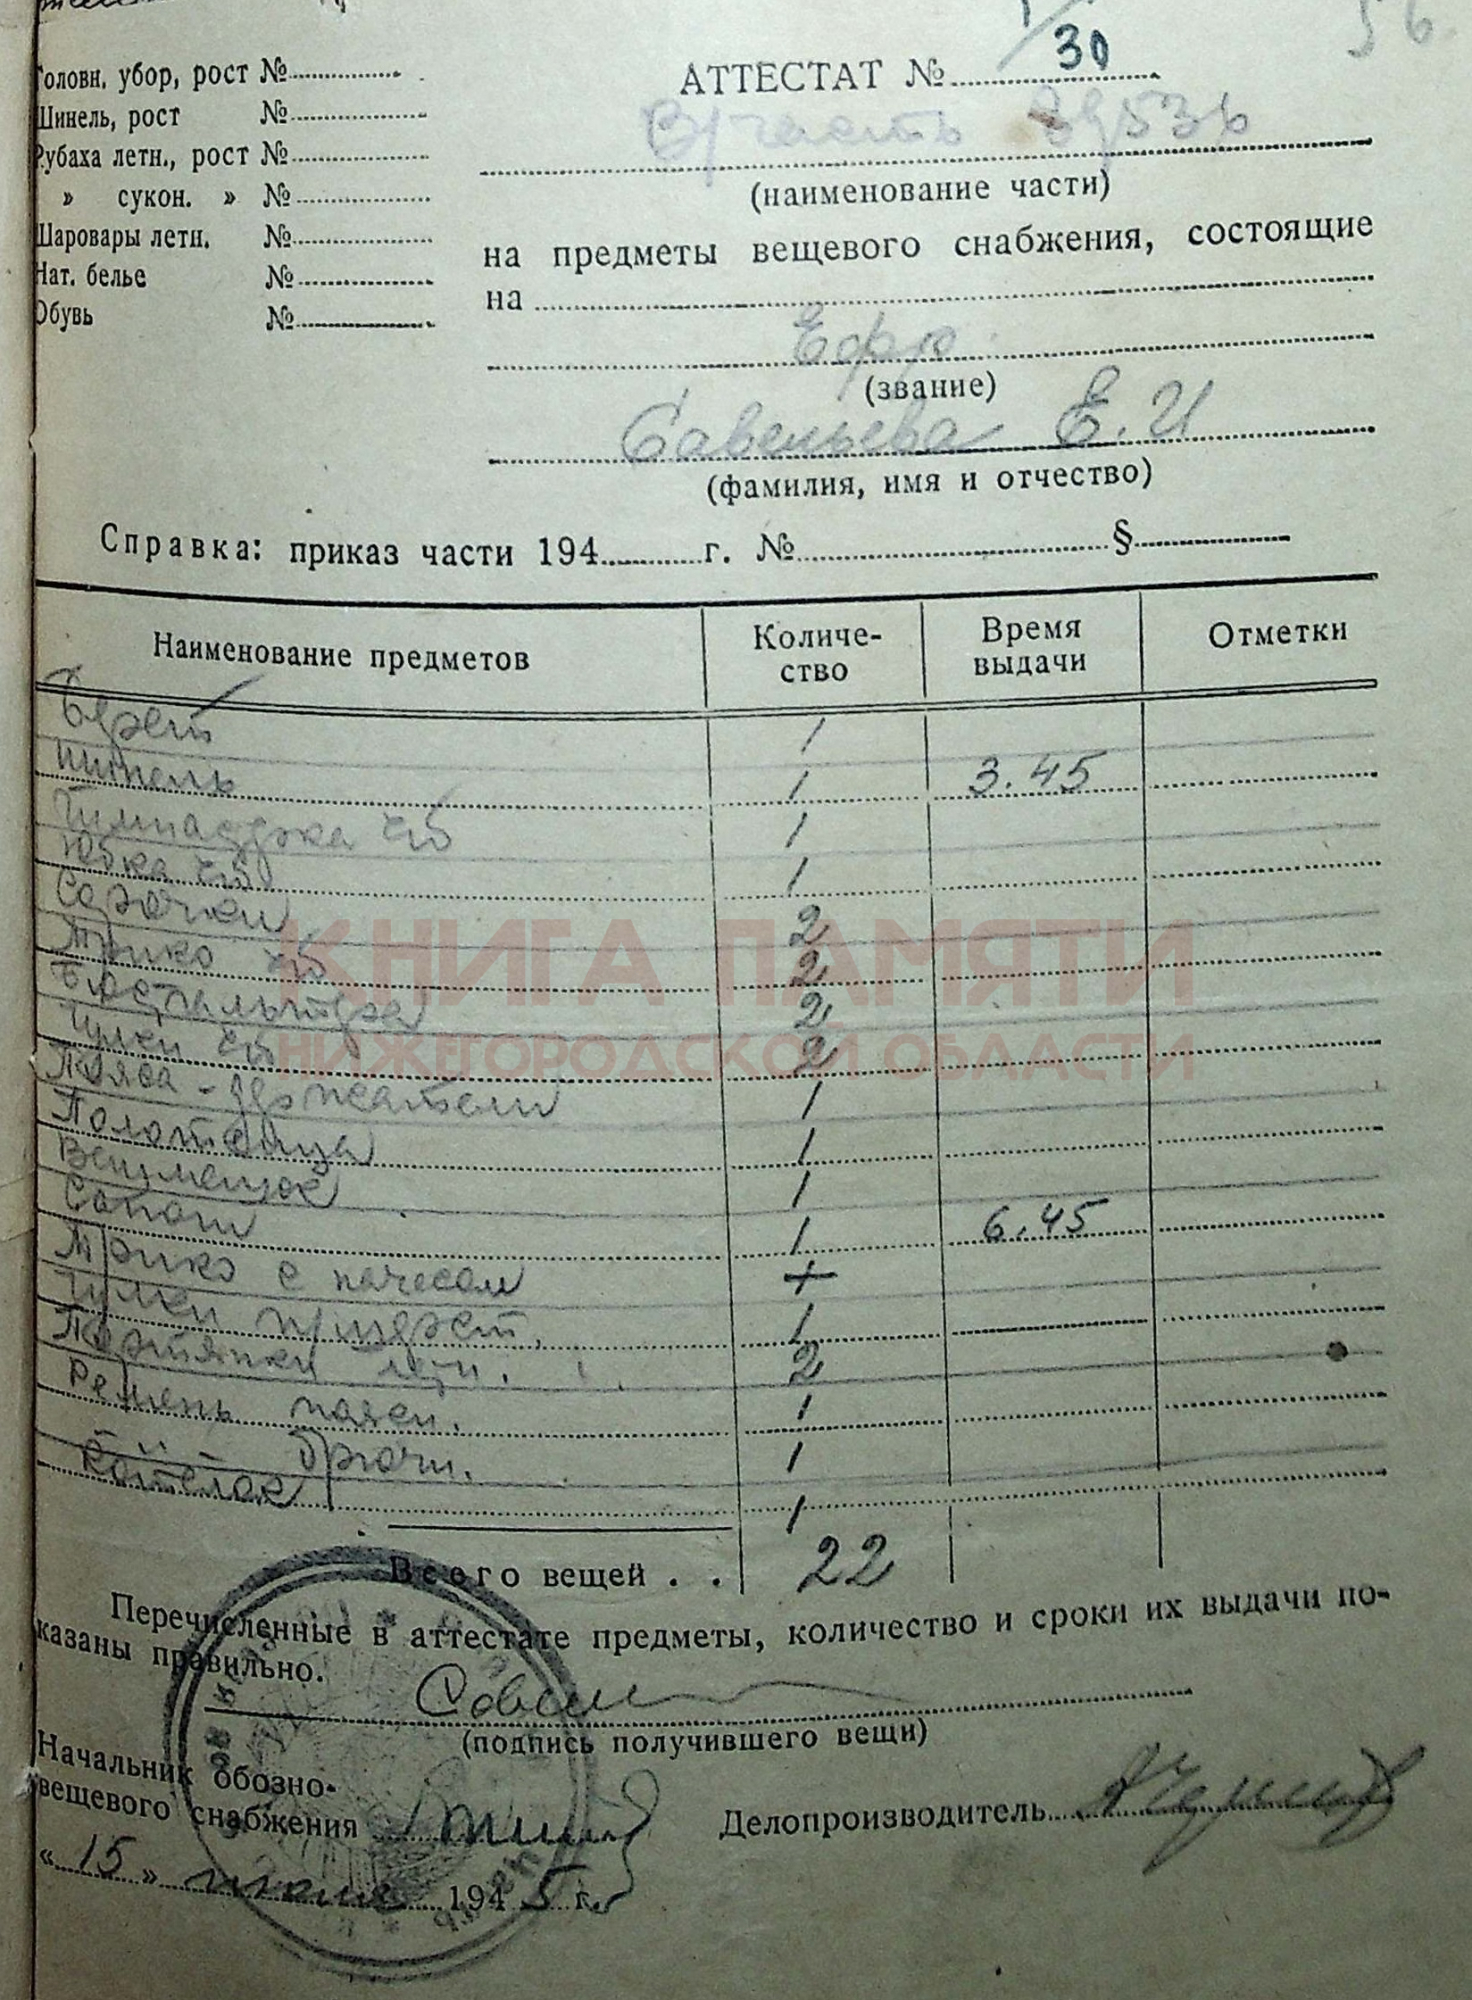 Головн. убор, рост №
Шинель, рост №
Рубаха летн., рост №
» сукон. » №
Шаровары летн. №
Нат. белье №
Обувь №
АТТЕСТАТ № 30
В/часть
(наименование части)
на предметы вещевого снабжения, состоящие
на
Ефр.
(звание)
Савельева Е. И
(фамилия, имя и отчество)
Справка: приказ части 194 г. № §
Наименование предметов Количе- Время Отметки
ство выдачи
Берет 1
Шинель 1 3.45
Гимнастерка х/б 1
Юбка х/б 1
Сорочки 2
Трико х/б 2
Бюстгальтера 2
Чулки х/б 2
Пояса-держатели 1
Полотенца 1
Вещмешок 1
Сапоги 1 6.45
Трико с начесом 1
Чулки 1
Портянки летн. 2
Ремень поясн. 1
брючн. 1
Котелок 1
Всего вещей . . 22
Перечисленные в аттестате предметы, количество и сроки их выдачи по-
казаны правильно.
(подпись получившего вещи)
Начальник обозно-
вещевого снабжения
Делопроизводитель
« 15 » 194 5 г.
КНИГА ПАМЯТИ
НИЖЕГОРОДСКОЙ ОБЛАСТИ